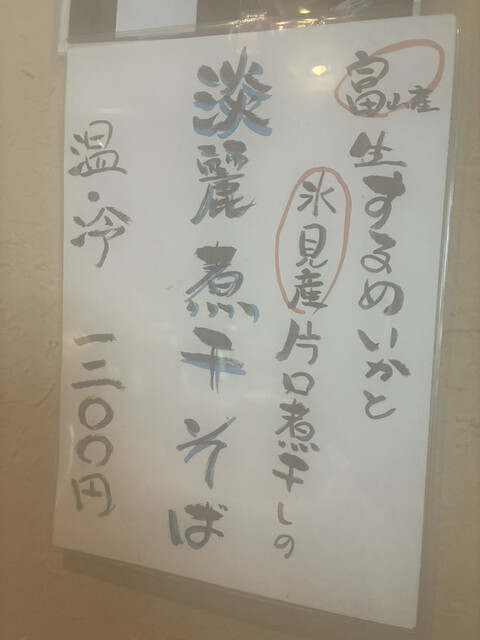 富山産
生するめいかと
氷見産片口煮干しの
淡麗煮干そば
温・冷 一三〇〇円